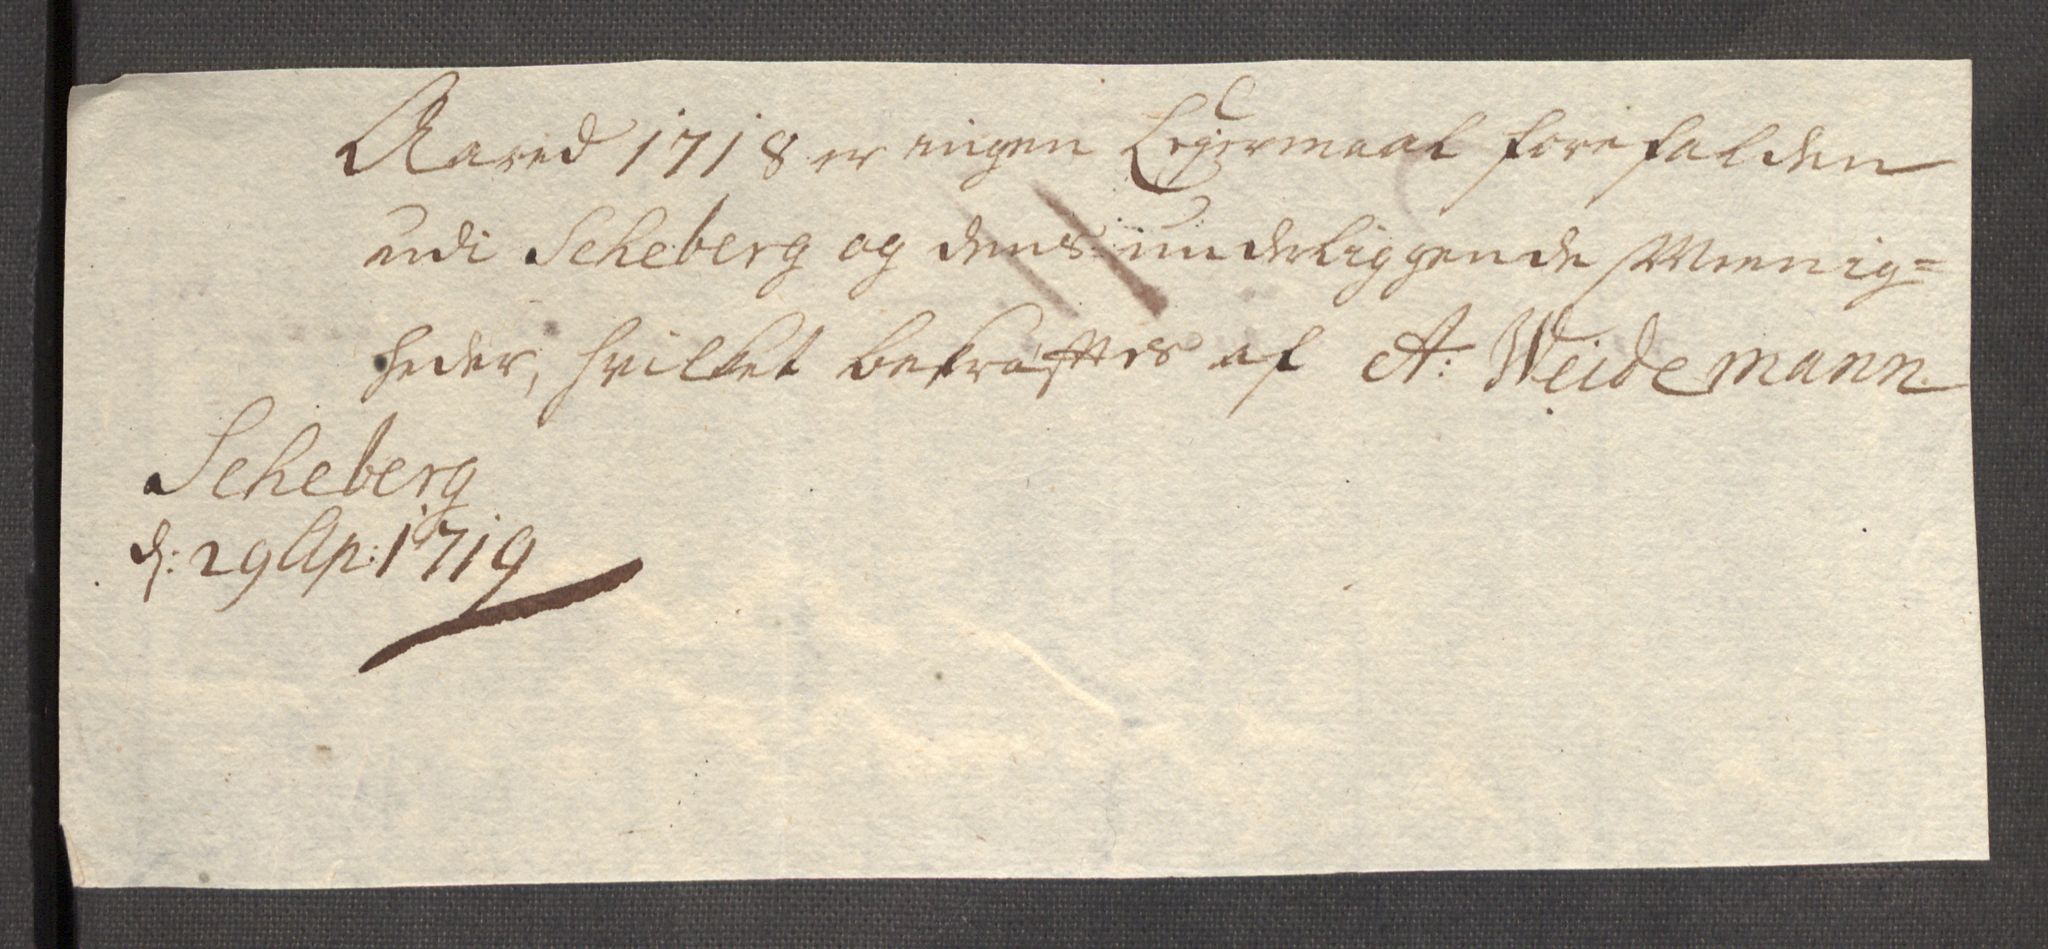 Aared 1718 er ingen Legermaal forefalden
udi Scheberg og dens underliggende Meenig=
heder, hvilket bekräfftes af A: Weidemann.
Scheberg
d: 29 Ap: 1719